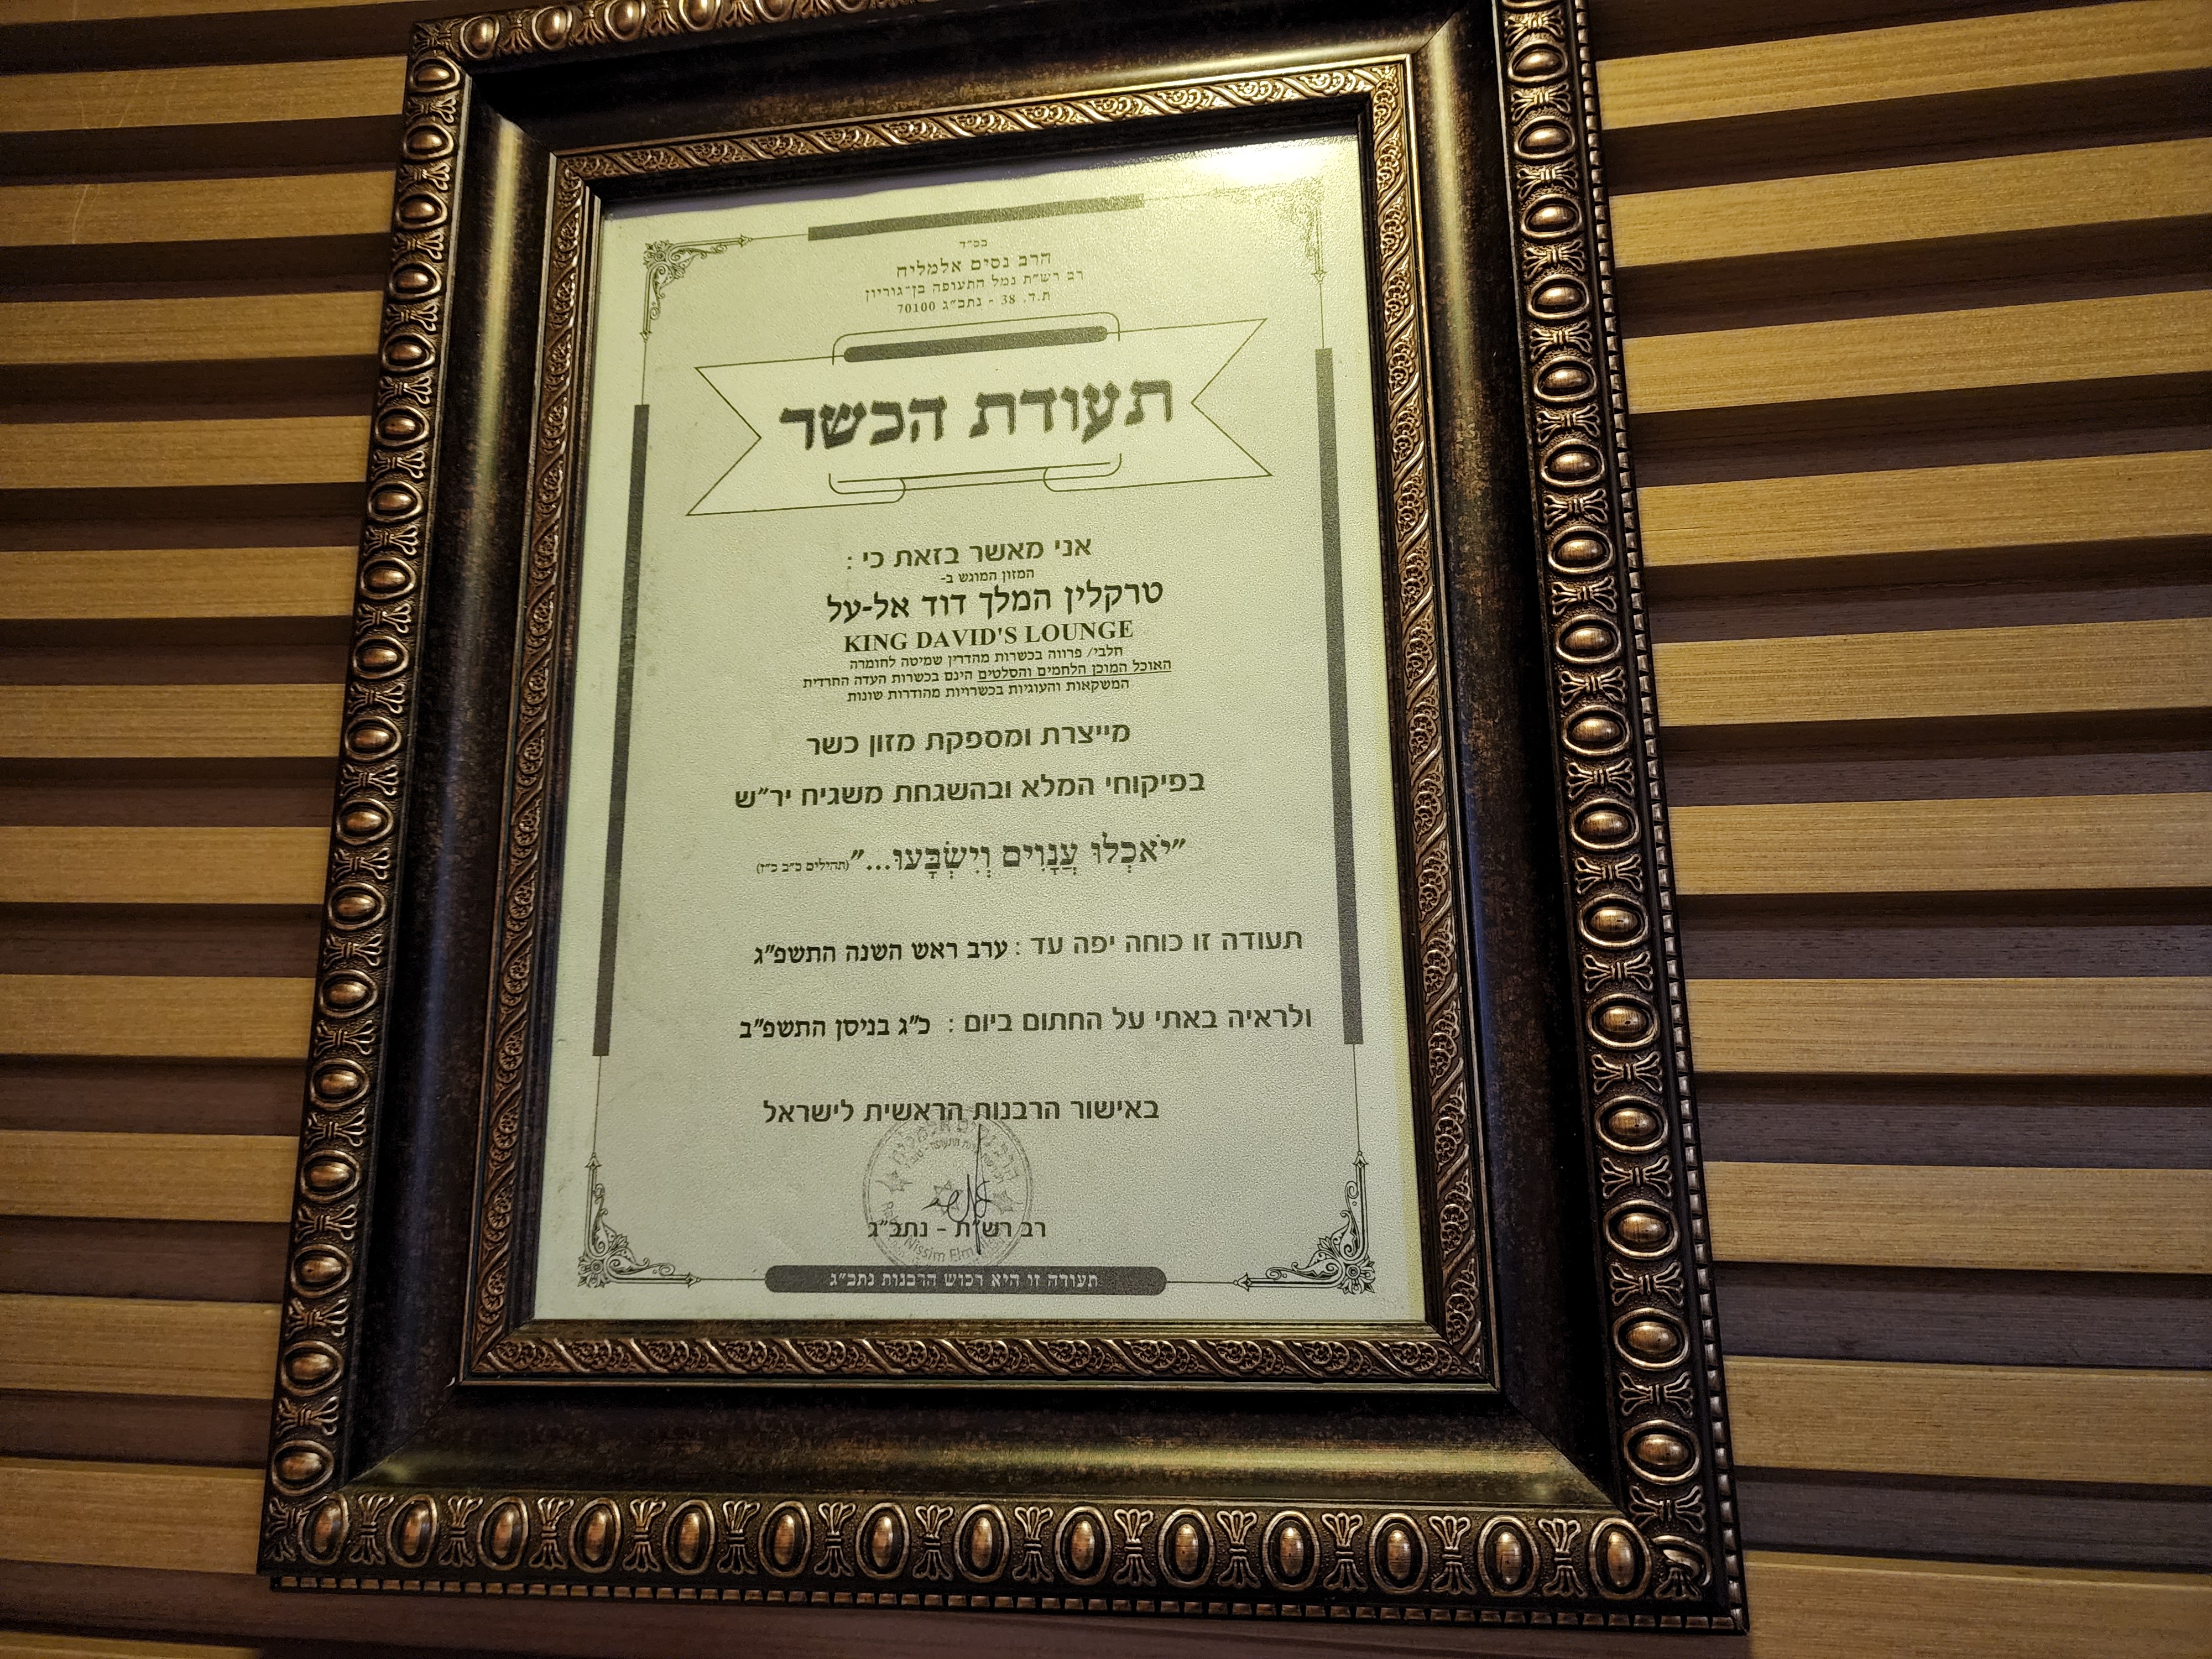 בס״ד
הרב נסים אלמליח
רב רש״ת נמל התעופה בן-גוריון
ת.ד. 38 - נתב״ג 70100
תעודת הכשר
אני מאשר בזאת כי :
המזון המוגש ב-
טרקלין המלך דוד אל-על
KING DAVID'S LOUNGE
חלבי/ פרווה בכשרות מהדרין שמיטה לחומרה
האוכל המוכן הלחמים והסלטים הינם בכשרות העדה החרדית
המשקאות והעוגיות בכשרויות מהודרות שונות
מייצרת ומספקת מזון כשר
בפיקוחי המלא ובהשגחת משגיח יר״ש
״יֹאכְלוּ עֲנָוִים וְיִשְׂבָּעוּ...״ (תהילים כ״ב כ״ז)
תעודה זו כוחה יפה עד : ערב ראש השנה התשפ״ג
ולראיה באתי על החתום ביום : כ״ג בניסן התשפ״ב
באישור הרבנות הראשית לישראל
רב רש״ת - נתב״ג
Nissim
תעודה זו היא רכוש הרבנות נתב״ג